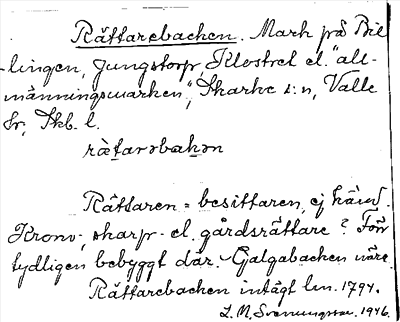 Rättarebacken. Mark på Bil-
lingen, Ljungstorp, Klostret el. "all-
männingsmarken", Skarke s:n, Valle
hr, Skb. l.
rätarəbakən
Rättaren = besittaren, ej känd.
Krono-, skarp- el. gårdsrättare? För
tydligen bebyggt där. Galgabacken nära.
Rättarebacken intagt len. 1794.
L. M. Svenungsson. 1946.